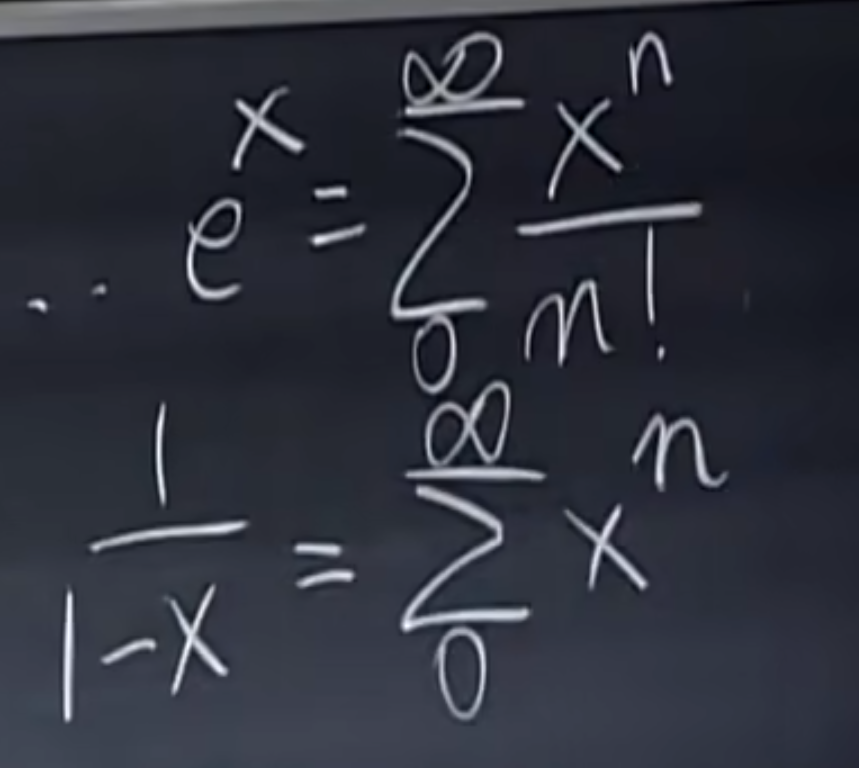 .. e^x = ∞∑0 x^n/n!
1/(1-x) = ∞∑0 x^n